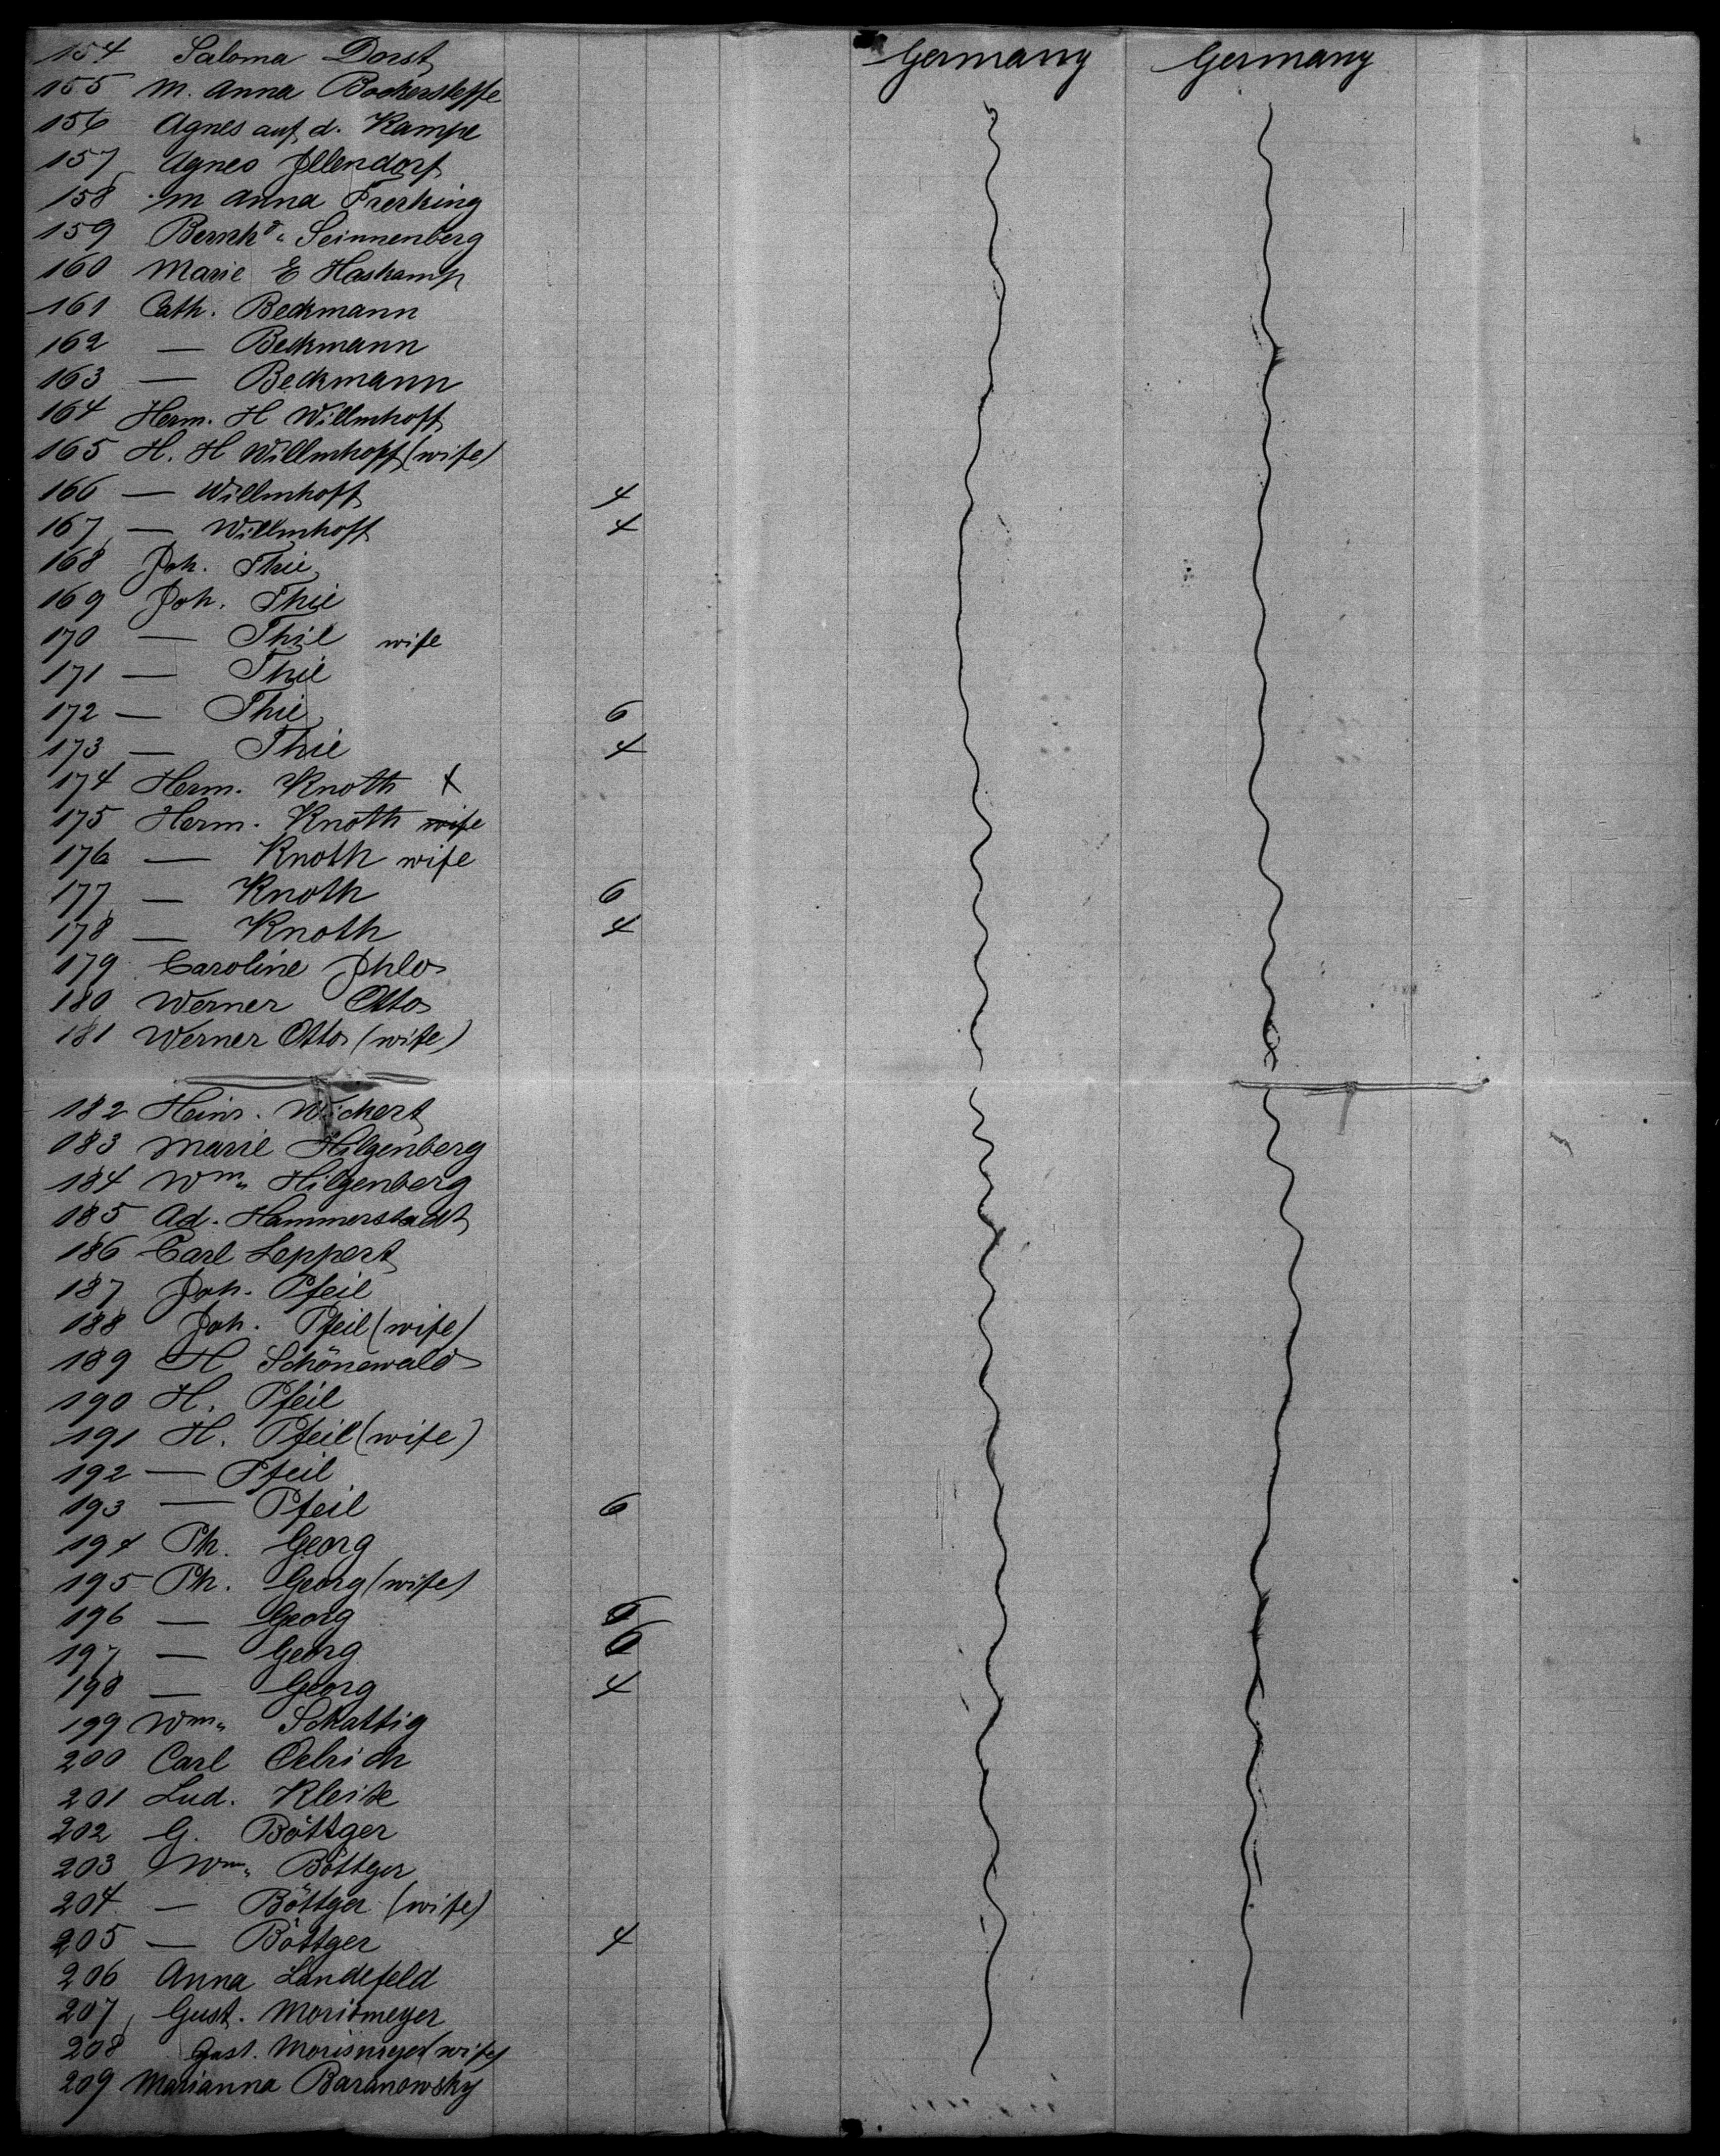 154 Saloma Dorst Germany Germany
155 M. Anna
156 Agnes auf d. Kampe
157 Agnes Illendorf
158 M Anna Frerking
159 Bernhd. Seinnenberg
160 Marie E Haskamp
161 Cath. Beckmann
162 — Beckmann
163 — Beckmann
164 Herm. H Willmhoff
165 H. H Willmhoff (wife)
166 — Willmhoff 4
167 — Willmhoff 4
168 Joh. Thie
169 Joh. Thie
170 — Thie wife
171 — Thie
172 — Thie 6
173 — Thie 4
174 Herm. Knoth X
175 Herm. Knoth wife
176 — Knoth wife
177 — Knoth 6
178 — Knoth 4
179 Caroline Ihlo
180 Werner Otto
181 Werner Otto (wife)
182 Heinr. Wickert
183 Marie Hilgenberg
184 Wm. Hilgenberg
185 Ad. Hammerstadt
186 Carl Leppert
187 Joh. Pfeil
188 Joh. Pfeil (wife)
189 H Schönewald
190 H. Pfeil
191 H. Pfeil (wife)
192 — Pfeil
193 — Pfeil 6
194 Ph. Georg
195 Ph. Georg (wife)
196 — Georg 6
197 — Georg 6
198 — Georg 4
199 Wm. Schattig
200 Carl Oelrich
201 Lud. Kleise
202 G. Böttger
203 Wm. Böttger
204 — Böttger (wife)
205 — Böttger 4
206 Anna Landefeld
207 Gust. Morismeyer
208 Gust. Morismeyer (wife)
209 Marianna Baranowsky